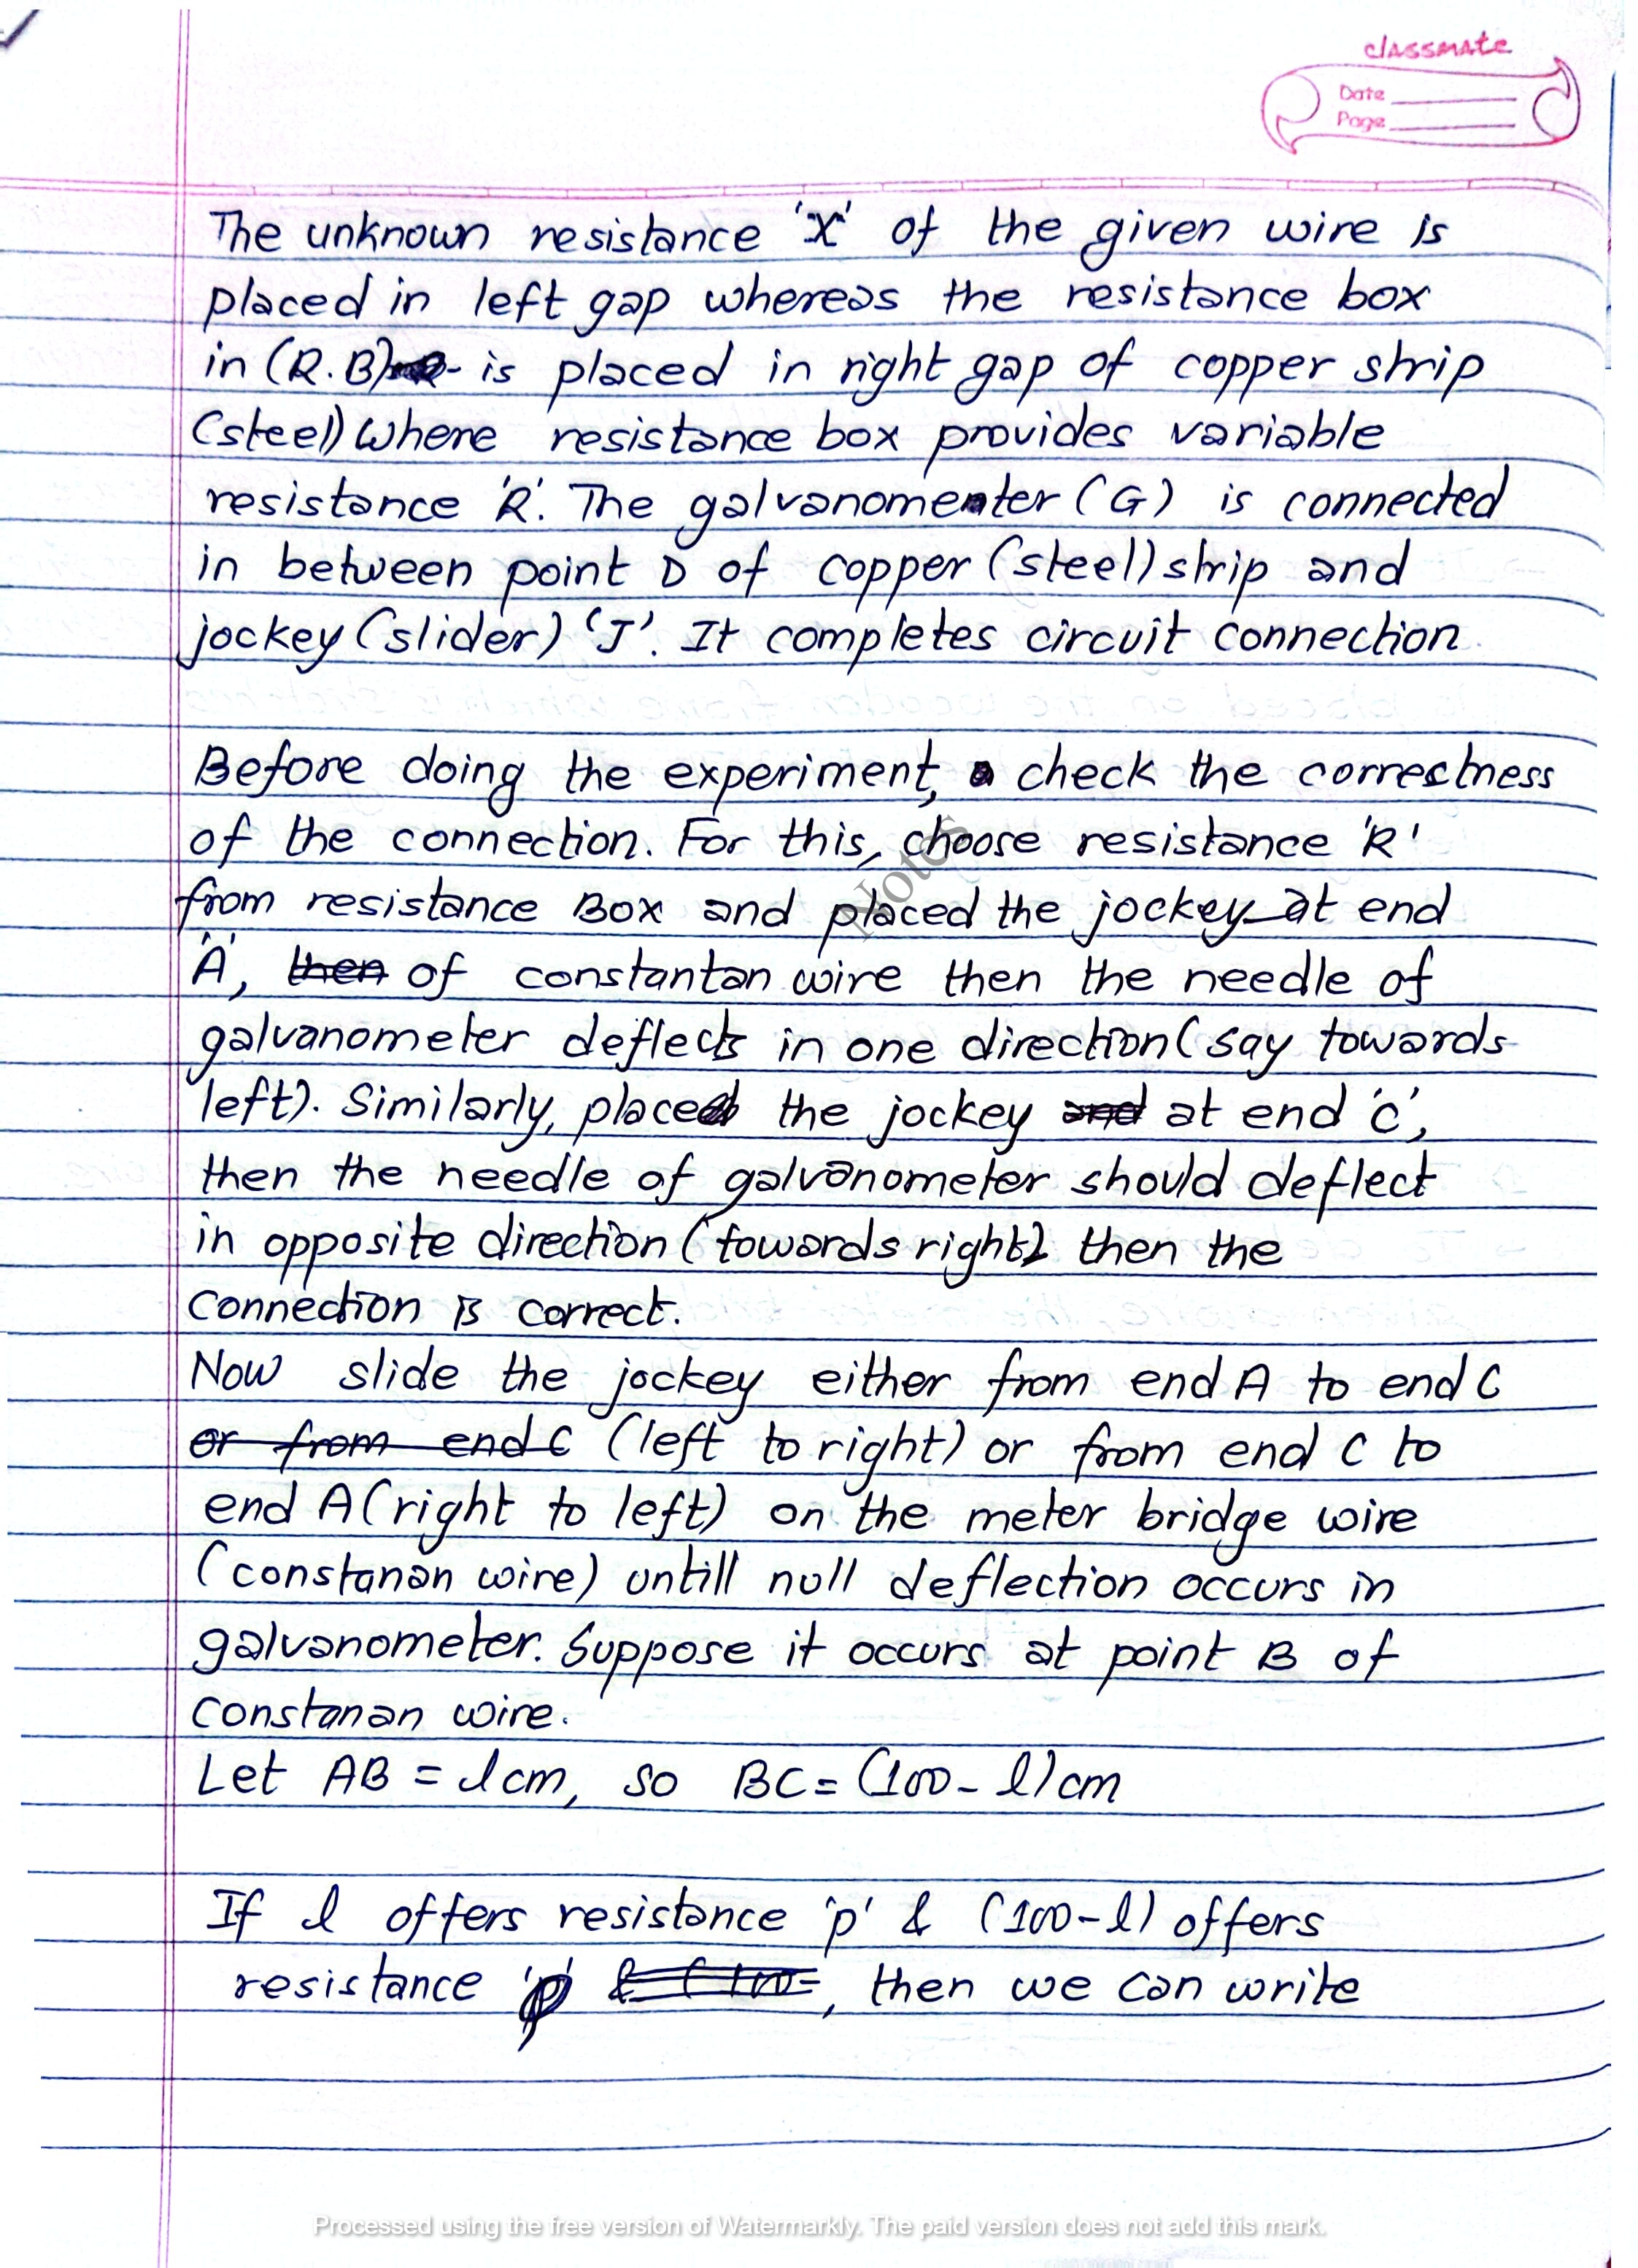 classmate
Date
Page
The unknown resistance 'X' of the given wire is
placed in left gap whereas the resistance box
in (R.B) is placed in right gap of copper strip
(steel) where resistance box provides variable
resistance 'R'. The galvanomenter (G) is connected
in between point D of copper (steel) strip and
jockey (slider) 'J'. It completes circuit connection.
Before doing the experiment, check the correctness
of the connection. For this, choose resistance 'R'
Notes
from resistance Box and placed the jockey at end
'A', then of constantan wire then the needle of
galvanometer deflects in one direction (say towards
left). Similarly, place the jockey and at end 'C',
then the needle of galvanometer should deflect
in opposite direction (towards right) then the
connection is correct.
Now slide the jockey either from end A to end C
or from end C (left to right) or from end C to
end A (right to left) on the meter bridge wire
(constanan wire) untill null deflection occurs in
galvanometer. Suppose it occurs at point B of
constanan wire.
Let AB = l cm, so BC = (100 - l) cm
If l offers resistance 'p' & (100 - l) offers
resistance & (100 - , then we can write
Processed using the free version of Watermarkly. The paid version does not add this mark.